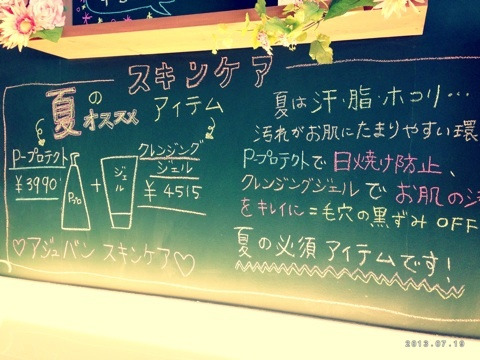 スキンケア
夏の
オススメ
アイテム
P-プロテクト
¥3990
Pro
+
ジェル
クレンジング
ジェル
¥4515
♡アジュバン スキンケア♡
夏は汗・脂・ホコリ…
汚れがお肌にたまりやすい環
P-プロテクトで日焼け防止、
クレンジングジェルでお肌の
をキレイに=毛穴の黒ずみOFF
夏の必須アイテムです!
2013.07.19